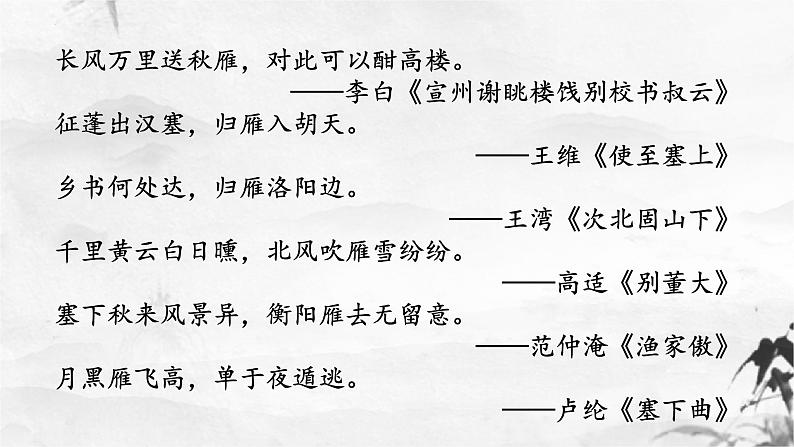 长风万里送秋雁，对此可以酣高楼。
——李白《宣州谢眺楼饯别校书叔云》
征蓬出汉塞，归雁入胡天。
——王维《使至塞上》
乡书何处达，归雁洛阳边。
——王湾《次北固山下》
千里黄云白日曛，北风吹雁雪纷纷。
——高适《别董大》
塞下秋来风景异，衡阳雁去无留意。
——范仲淹《渔家傲》
月黑雁飞高，单于夜遁逃。
——卢纶《塞下曲》